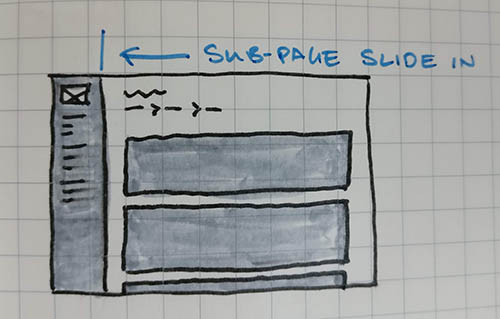 SUB-PAGE SLIDE IN